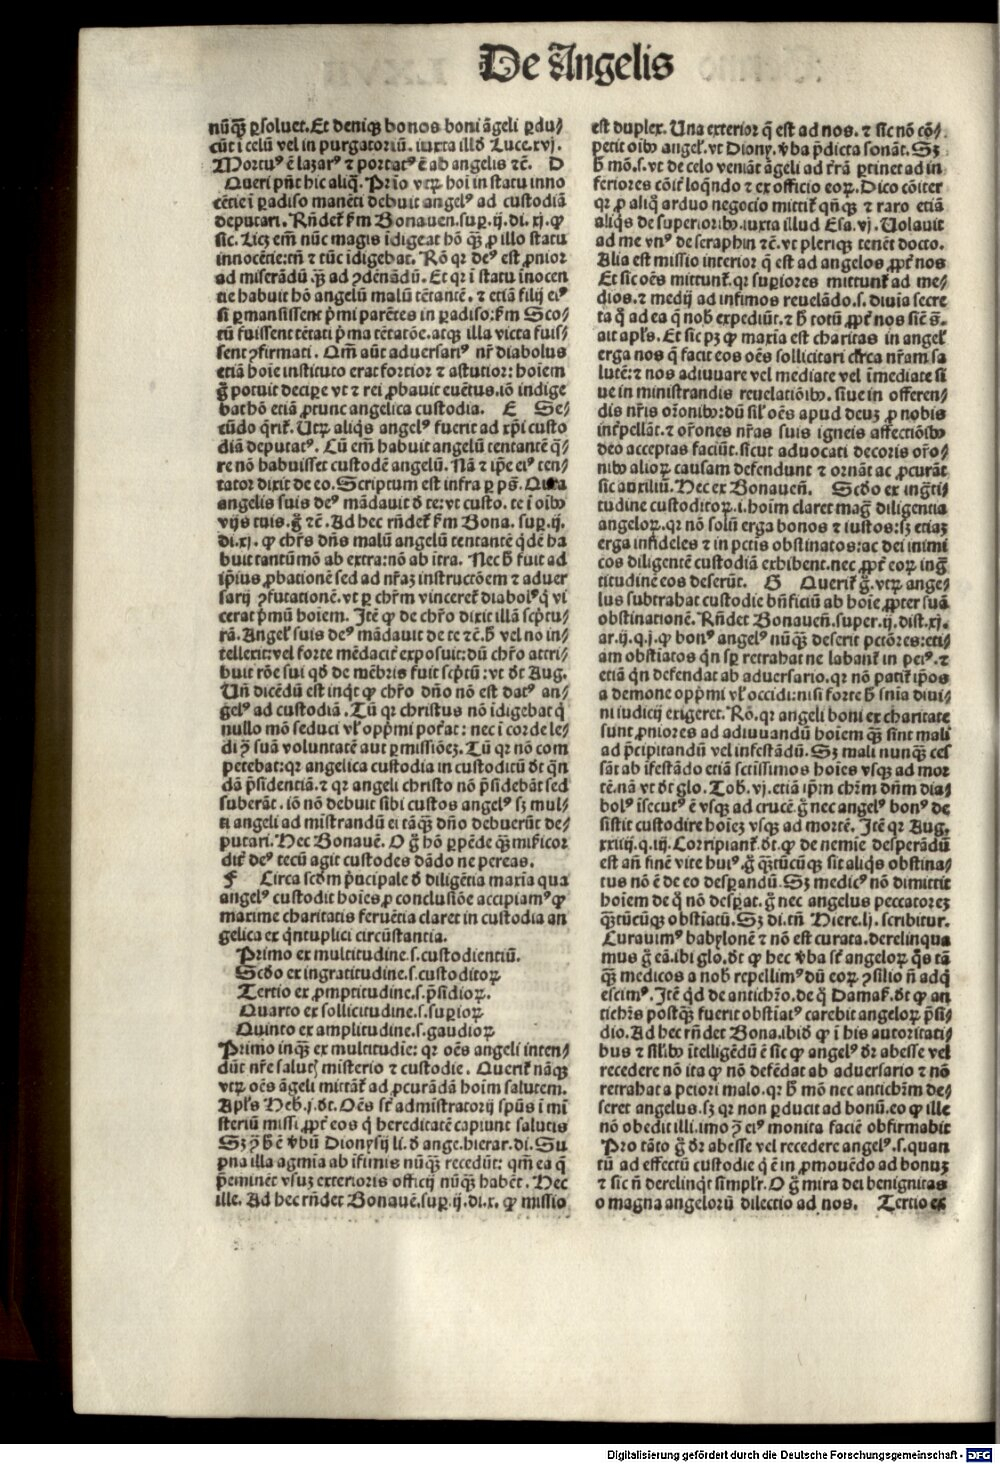 De Angelis
nūq̄ ꝑsoluet. Et deniqꝫ bonos boni āgeli ꝑdu⸗
cūt ī celū vel in purgatoriū. iuxta illd̄ Luce. xvj.
Mortuꝰ ē lazarꝰ ⁊ portatꝰ ē ab angelis ⁊c̄. D
Queri pn̄t hic aliq̄. Prīo vtꝝ hoī in statu inno
cētie ī ꝑadiso manēti debuit angelꝰ ad custodiā
deputari. Rn̄det̄ ẜm Bonauen. suꝑ. ij. di. xj. ꝙ
sic. Licꝫ em̄ nūc magis īdigeat hō q̄ꝫ ꝓ illo statu
innocētie: tn̄ ⁊ tūc īdigebat. Rō qꝛ deꝰ est ꝓnior
ad miserādū. q̄ꝫ ad ꝯdēnādū. Et qꝛ ī statu īnocen
tie habuit hō angelū malū tētantē. ⁊ etiā filij eiꝰ
si ꝑmansissent p̄mi parētes in ꝑadiso: ẜm Sco⸗
tū fuissent tētati p̄ma tētatōe. atqꝫ illa victa fuis⸗
sent ꝯfirmati. Qm̄ aūt aduersariꝰ nr̄ diabolus
etiā hoīe instituto erat fortior ⁊ astutior: hoiem
g̊ potuit decipe vt ⁊ rei ꝓbauit euētus. iō indige
bat hō etiā ꝓtunc angelica custodia. E Se⸗
cūdo q̄rit̄. Utꝝ aliq̄s angelꝰ fuerit ad xp̄i custo
diā deputatꝰ. Cū em̄ habuit angelū tentantē q̄⸗
re nō habuisset custodē angelū. Nā ⁊ ip̄e eiꝰ ten⸗
tator dixit de eo. Scriptum est infra ꝑ ps̄. Quia
angelis suis deꝰ mādauit d̄ te: vt custo. te ī oībꝰ
vijs tuis. g̊ ⁊c̄. Ad hec rn̄det̄ ẜm Bona. suꝑ. ij.
di. xj. ꝙ chr̄s dn̄s malū angelū tentantē q̄dē ha
buit tantūmō ab extra: nō ab ītra. Nec h̄ fuit ad
ip̄ius ꝓbationē sed ad nr̄aꝫ instructōem ⁊ aduer
sarij ꝯfutationē. vt ꝑ chr̄m vinceret̄ diabolꝰ q̄ vi
cerat p̄mū hoiem. Itē ꝙ de chr̄o dixit illā scp̄tu⸗
rā. Angel̄ suis deꝰ mādauit de te ⁊c̄. h̄ vel no in⸗
tellexit: vel forte mēdacit̄ exposuit: dū chr̄o attri⸗
buit rōe sui qd̄ de mēbris fuit scp̄tū: vt dt̄ Aug.
Un̄ dicēdū est inq̄t ꝙ chr̄o dn̄o nō est datꝰ an⸗
gelꝰ ad custodiā. Tū qꝛ christus nō īdigebat q̄
nullo mō seduci vl̄ opp̄mi pot̄at: nec ī corde le⸗
di ꝯ̄ suā voluntatē aut ꝑmissiōeꝫ. Tū qꝛ nō com
petebat: qꝛ angelica custodia in custoditū dt̄ q̄n
dā p̄sidentiā. ⁊ qꝛ angeli christo nō p̄sidebāt sed
suberāt. iō nō debuit sibi custos angelꝰ sꝫ mul⸗
ti angeli ad mīstrandū ei tāq̄ꝫ dn̄o debuerūt de⸗
putari. Hec Bonauē. O g̊ hō ꝑpēde q̄ꝫ mīẜicor
dit̄ deꝰ tecū agit custodes dādo ne pereas.
F Circa scd̄m p̄ncipale d̄ diligētia maxīa qua
angelꝰ custodit hoīes ꝓ conclusiōe accipiamꝰ ꝙ
maxime charitatis feruētia claret in custodia an
gelica ex q̄ntuplici circūstantia.
Primo ex multitudine. s. custodientiū.
Scd̄o ex ingratitudine. s. custoditoꝝ
Tertio ex ꝓmptitudine. s. p̄sidioꝝ.
Quarto ex sollicitudine. s. supioꝝ
Quinto ex amplitudine. s. gaudioꝝ
Primo inq̄ꝫ ex multitudīe: qꝛ oēs angeli inten⸗
dūt nr̄e salutꝭ misterio ⁊ custodie. Querit̄ nāqꝫ
vtꝝ oēs āgeli mittāt̄ ad ꝓcurādā hoīm salutem.
Apl̄s Heb. j. dt̄. Oēs st̄ admīstratorij spūs ī mī
steriū missi ꝓpt̄ eos q̄ hereditatē capiunt salutis
Sꝫ ꝯ̄ h̄ ē v̄bū Dionysij li. d̄ ange. hierar. di. Su
pna illa agmīa ab īfimis nūq̄ꝫ recedūt: qm̄ ea q̄
p̄eminēt vsuꝫ exterioris officij nūq̄ꝫ habēt. Hec
ille. Ad hec rn̄det Bonauē. suꝑ. ij. di. x. ꝙ missio
est duplex. Una exterior q̄ est ad nos. ⁊ sic nō cō⸗
petit oībꝰ angel̄. vt Diony. v̄ba p̄dicta sonāt. Sꝫ
h̄ mō. s. vt de celo veniāt āgeli ad t̄rā ꝑtinet ad in
feriores cōit̄ loq̄ndo ⁊ ex officio eoꝝ. Dico cōiter
qꝛ ꝓ aliq̄ arduo negocio mittit̄ qn̄qꝫ ⁊ raro etiā
aliq̄s de superioribꝰ. iuxta illud Esa. vj. Uolauit
ad me vnꝰ de seraphin ⁊c̄. vt pleriqꝫ tenēt docto.
Alia est missio interior q̄ est ad angelos ꝓpt̄ nos
Et sic oēs mittunt̄. qꝛ supiores mittunt̄ ad me⸗
dios. ⁊ medij ad infimos reuelādo. s. diuīa secre
ta q̄ ad ea q̄ nob̄ expediūt. ⁊ h̄ totū ꝓpt̄ nos sicut s̄.
ait apl̄s. Et sic pꝫ ꝙ maxīa est charitas in angel̄
erga nos q̄ facit eos oēs sollicitari circa nr̄am sa
lutē: ⁊ nos adiuuare vel mediate vel īmediate si
ue in ministrandis reuelatiōibꝰ. siue in offeren⸗
dis nr̄is or̄onibꝰ: dū sil̄ oēs apud deuꝫ ꝓ nobis
int̄pellāt. ⁊ or̄ones nr̄as suis igneis affectiōibꝰ
deo acceptas faciūt. sicut aduocati decoris or̄o⸗
nibꝰ alioꝝ causam defendunt ⁊ ornāt ac ꝓcurāt
sic auxiliū. Hec ex Bonauen̄. Scd̄o ex ingr̄ti⸗
tudine custoditoꝝ. i. hoīm claret maḡ diligentia
angeloꝝ. qꝛ nō solū erga bonos ⁊ iustos: sꝫ etiaꝫ
erga infideles ⁊ in pctīs obstinatos: ac dei inimi
cos diligentē custodiā exhibent. nec ꝓpt̄ eoꝝ ingr̄
titudinē eos deserūt. G Querit̄ g̊. vtꝝ ange⸗
lus subtrahat custodie bn̄ficiū ab hoīe ꝓpter suā
obstinationē. Rn̄det Bonauen̄. super. ij. dist. xj.
ar. ij. q. j. ꝙ bonꝰ angelꝰ nūq̄ꝫ deserit pctōres: eti⸗
am obstīatos q̄n sꝑ retrahat ne labant̄ in peiꝰ. ⁊
etiā q̄n defendat ab aduersario. qꝛ nō patit̄ ip̄os
a demone opp̄mi vl̄ occidi: nisi forte h̄ sn̄ia diui⸗
ni iudicij exigeret. Rō. qꝛ angeli boni ex charitate
sunt ꝓniores ad adiuuandū hoiem q̄ꝫ sint mali
ad p̄cipitandū vel infestādū. Sꝫ mali nunq̄ꝫ ces
sāt ab īfestādo etiā sctīssimos hoīes vsqꝫ ad mor
tē. nā vt dt̄ glo. Tob. vj. etiā ip̄m chr̄m dn̄m dia⸗
bolꝰ īsecutꝰ ē vsqꝫ ad crucē. g̊ nec angelꝰ bonꝰ de
sistit custodire hoīeꝫ vsqꝫ ad mortē. Itē qꝛ Aug.
xxiij. q. iij. Corripiant̄. dt̄. ꝙ de nemīe desperādū
est an̄ finē vite huiꝰ. g̊ q̄ꝫtūcūqꝫ sit aliq̄s obstina⸗
tus nō ē de eo desꝑandū. Sꝫ medicꝰ nō dimittit
hoiem de q̄ nō desꝑat. g̊ nec angelus peccatoreꝫ
q̄ꝫtūcūqꝫ obstīatū. Sꝫ di. tn̄ Hiere. lj. scribitur.
Curauimꝰ babylonē ⁊ nō est curata. derelinqua
mus g̊ eā. ibi glo. dt̄ ꝙ hec v̄ba st̄ angeloꝝ q̄s tā
q̄ꝫ medicos a nob̄ repellimꝰ dū eoꝝ ꝯsilio n̄ adq̄
escimꝰ. Itē q̄d de antichr̄o. de q̄ Damas̄. dt̄ ꝙ an
tichr̄s postq̄ꝫ fuerit obstīatꝰ carebit angeloꝝ p̄si⸗
dio. Ad hec rn̄det Bona. ibid̄ ꝙ ī his autoritati⸗
bus ⁊ sil̄ibꝰ ītelligēdū ē sic ꝙ angelꝰ dr̄ abesse vel
recedere nō ita ꝙ nō defēdat ab aduersario ⁊ nō
retrahat a peiori malo. qꝛ h̄ mō nec antichr̄m de⸗
seret angelus. sꝫ qꝛ non ꝑducit ad bonū. eo ꝙ ille
nō obedit illi. imo ꝯ̄ eiꝰ monita faciē obfirmabit
Pro tāto g̊ dr̄ abesse vel recedere angelꝰ. s. quan
tū ad effectū custodie q̄ ē in ꝓmouēdo ad bonuꝫ
⁊ sic n̄ derelinq̄t simpl̄r. O g̊ mira dei benignitas
o magna angelorū dilectio ad nos. Tertio ex
Digitalisierung gefördert durch die Deutsche Forschungsgemeinschaft - DFG